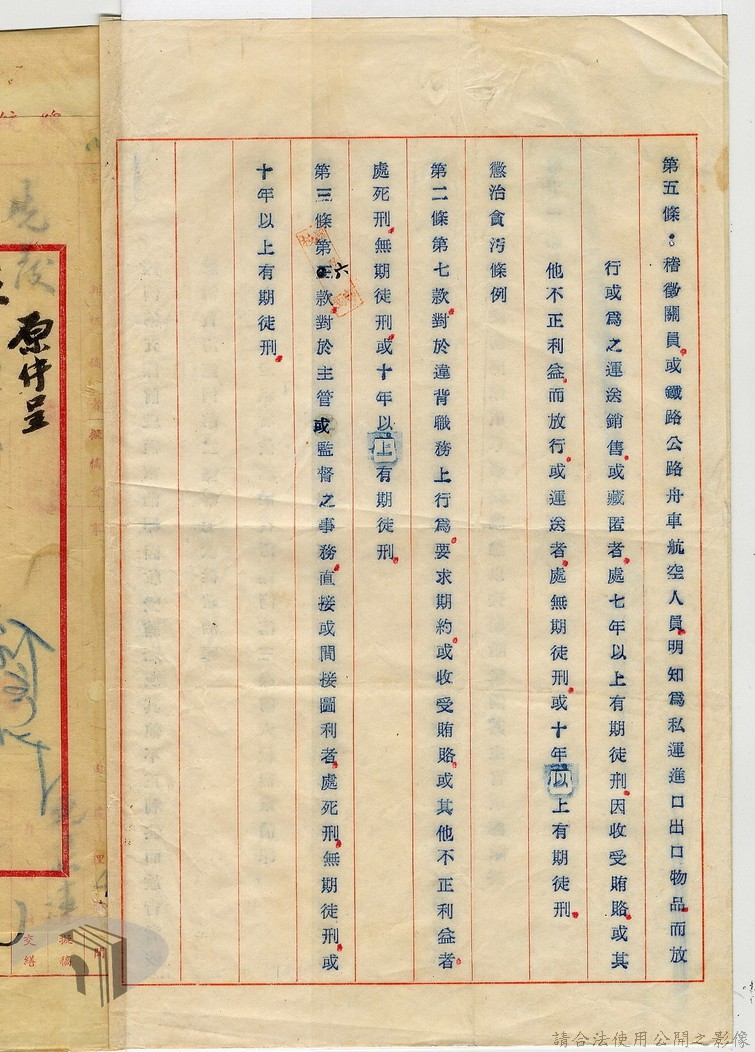 第五條：稽徵關員或鐵路公路舟車航空人員明知爲私運進口出口物品而放
行或爲之運送銷售或藏匿者處七年以上有期徒刑因收受賄賂或其
他不正利益而放行或運送者處無期徒刑或十年以上有期徒刑
懲治貪污條例
第二條第七款對於違背職務上行爲要求期約或收受賄賂或其他不正利益者
處死刑無期徒刑或十年以上有期徒刑
第三條第六款對於主管或監督之事務直接或間接圖利者處死刑無期徒刑或
十年以上有期徒刑
原件呈
擬稿
交繕
請合法使用公開之影像